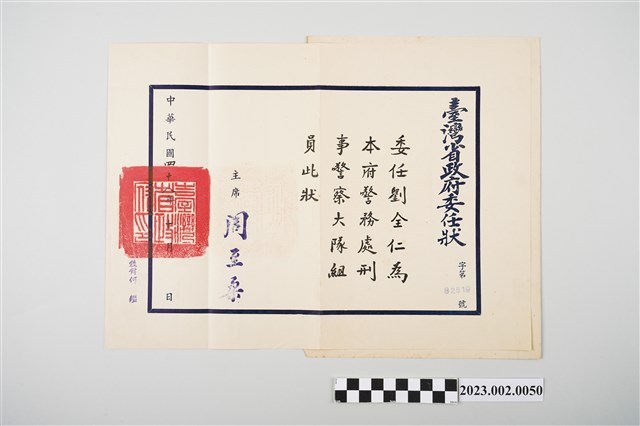 臺灣省政府委任狀
字第
號
委任劉全仁為
本府警務處刑
事警察大隊組
員此狀
主席 周至柔
中華民國四十 年 月 日
2023.002.0050